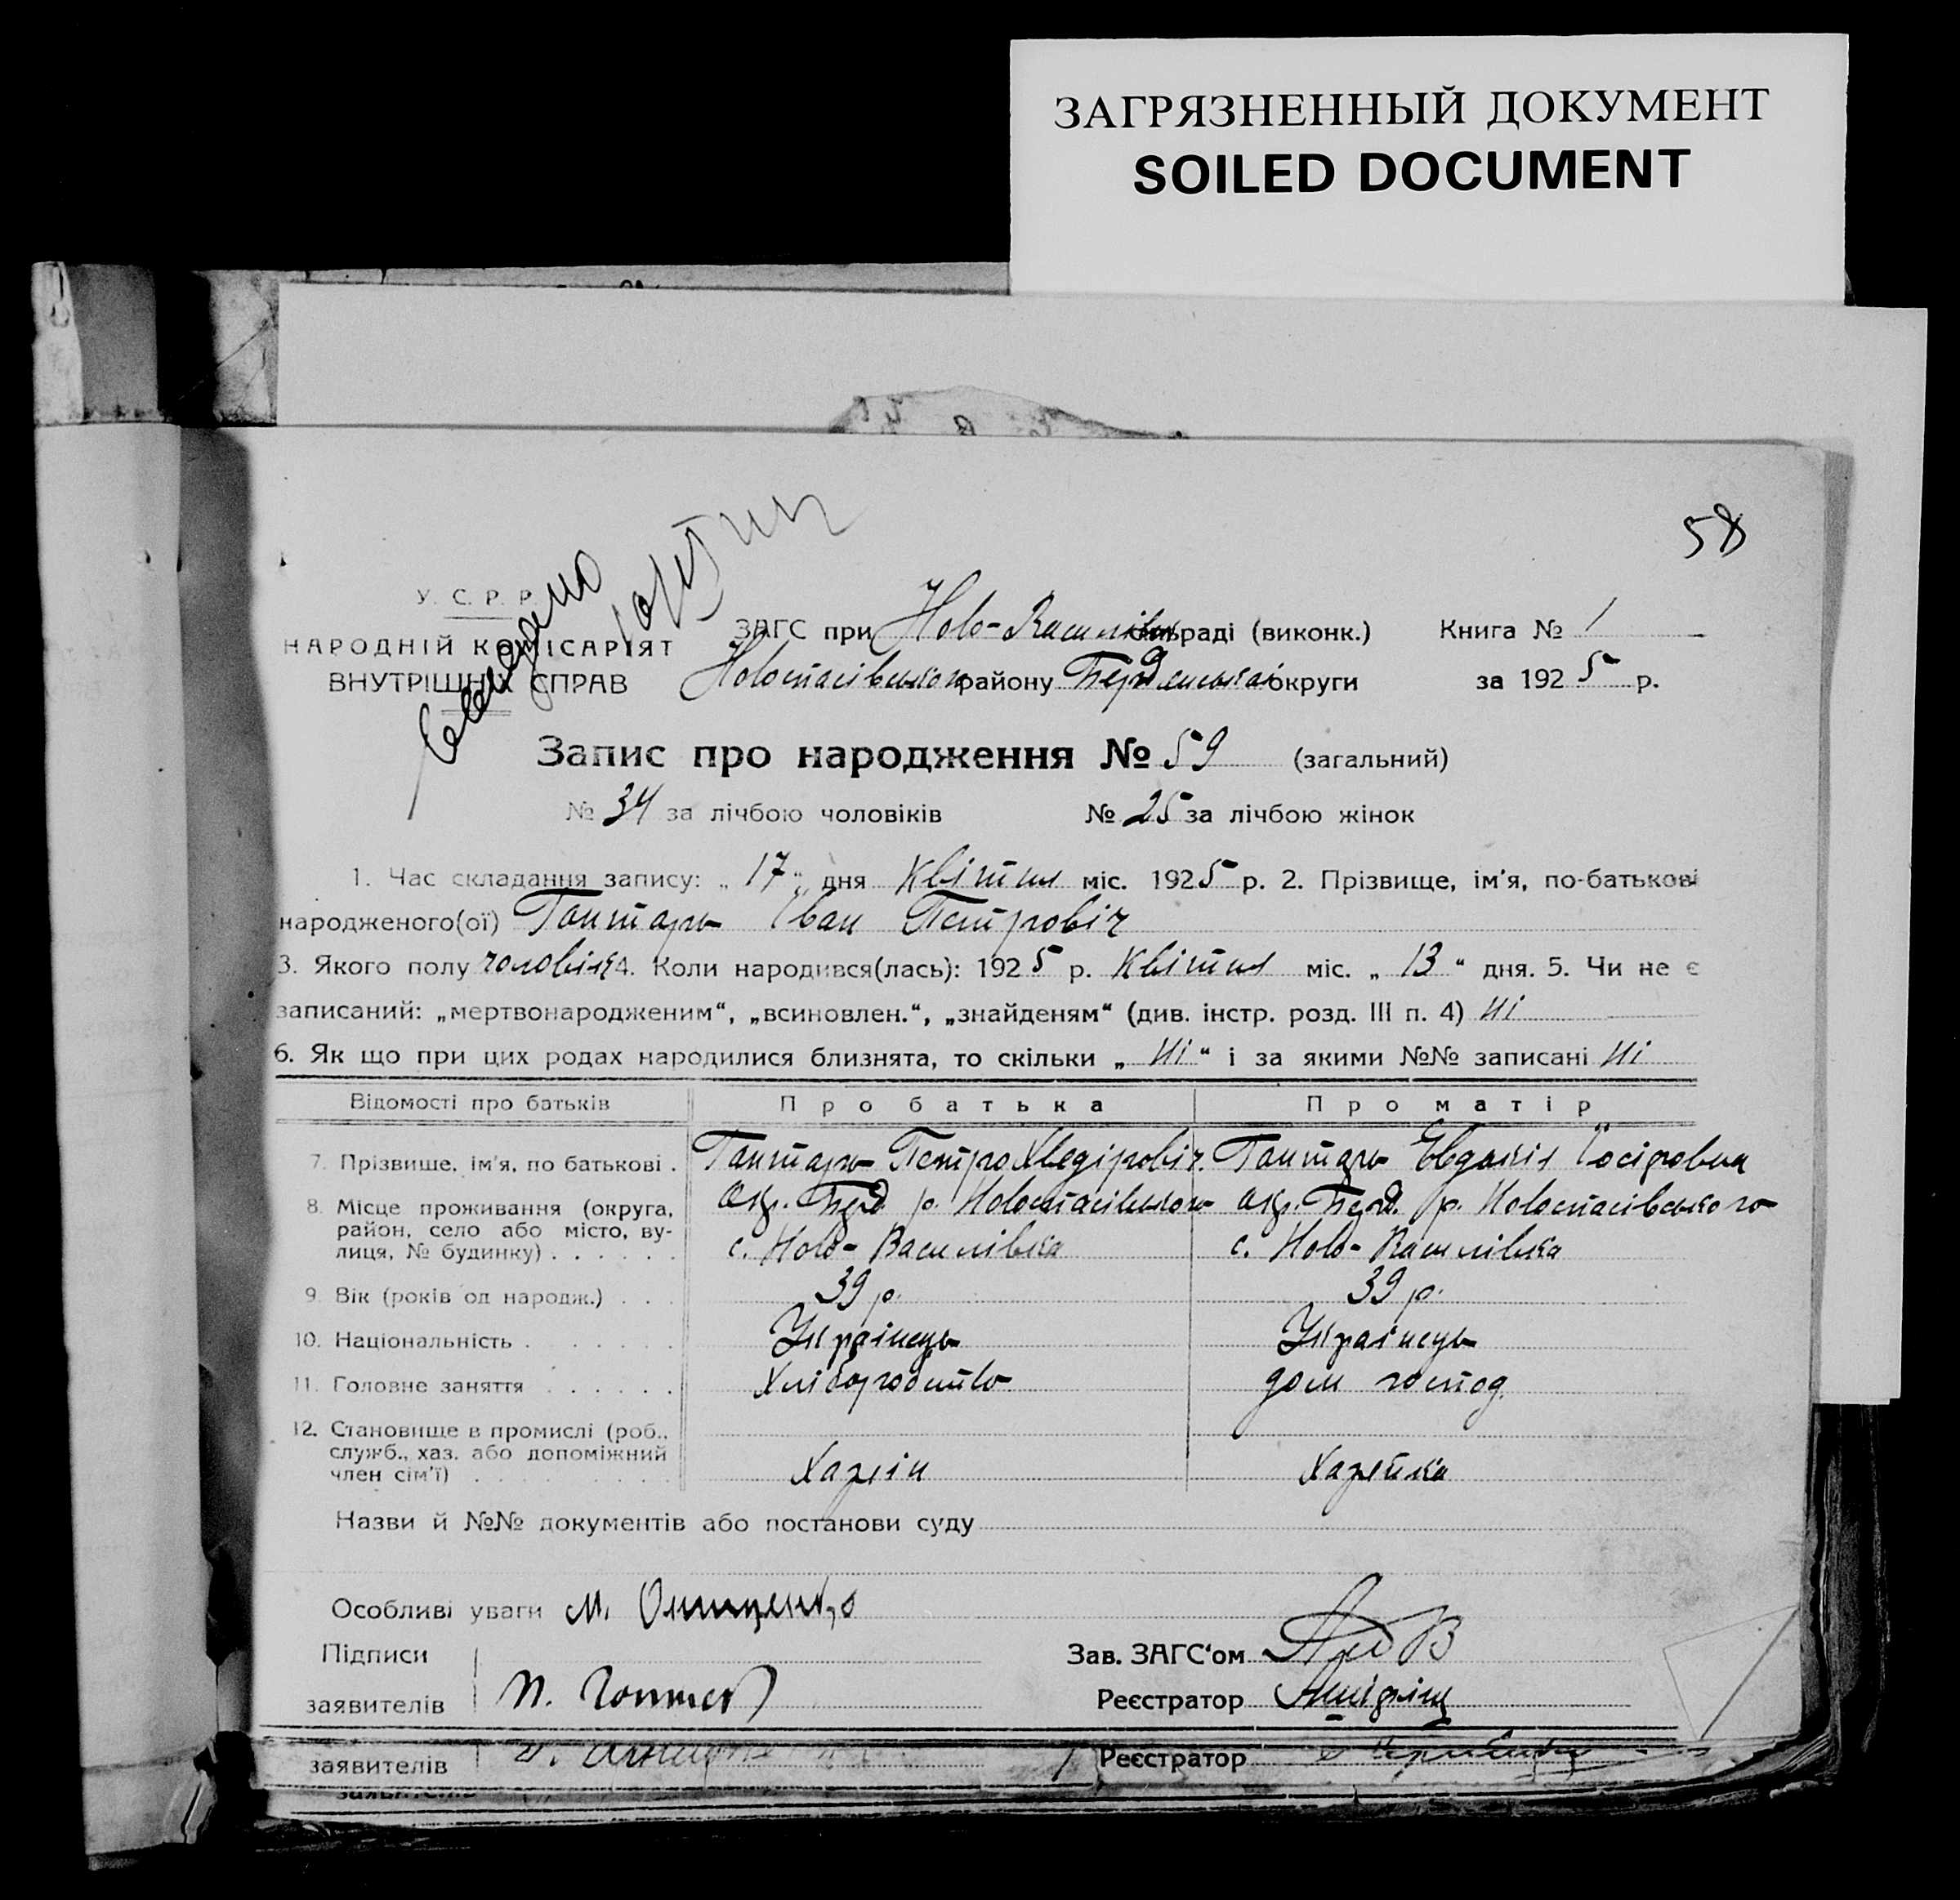 ЗАГРЯЗНЕННЫЙ ДОКУМЕНТ
SOILED DOCUMENT
58
У. С. Р. Р.
НАРОДНІЙ КОМІСАРІЯТ
ВНУТРІШНІХ СПРАВ
ЗАГС при Ново-Василівськ раді (виконк.) Книга № 1
Новоспасівського району Бердянської округи за 1925 р.
Запис про народження № 59 (загальний)
№ 34 за лічбою чоловіків № 25 за лічбою жінок
1. Час складання запису: „ 17 „ дня Квітня міс. 1925 р. 2. Прізвище, ім'я, по-батькові
народженого(ої) Гонтарь Іван Петровіч
3. Якого полу чоловік 4. Коли народився(лась): 1925 р. Квітня міс. „ 13 “ дня. 5. Чи не є
записаний: „мертвонародженим“, „всиновлен.“, „знайденям“ (див. інстр. розд. III п. 4) ні
6. Як що при цих родах народилися близнята, то скільки „ ні “ і за якими №№ записані ні
Відомості про батьків Про батька Про матір
7. Прізвище, ім'я, по батькові . Гонтарь Петро Хведіровіч. Гонтарь Евдокія Іосіповна
8. Місце проживання (округа, окр. Берд р. Новоспасівського окр. Берд. р. Новоспасівського
район, село або місто, ву-
лиця, № будинку) . . . . . . с. Ново-Василівка с. Ново-Василівка
9. Вік (років од народж.) . . . 39 р. 39 р.
10. Національність . . . . . . Українець Українець
11. Головне заняття . . . . . . Хліборобство дом господ.
12. Становище в промислі (роб.,
служб., хаз. або допоміжний
член сім'ї) . . . . . . Хазяін Хазяйка
Назви й №№ документів або постанови суду
Особливі уваги М. Онищенко
Підписи Зав. ЗАГС'ом
заявителів П. Гонтар Реєстратор
заявителів Реєстратор